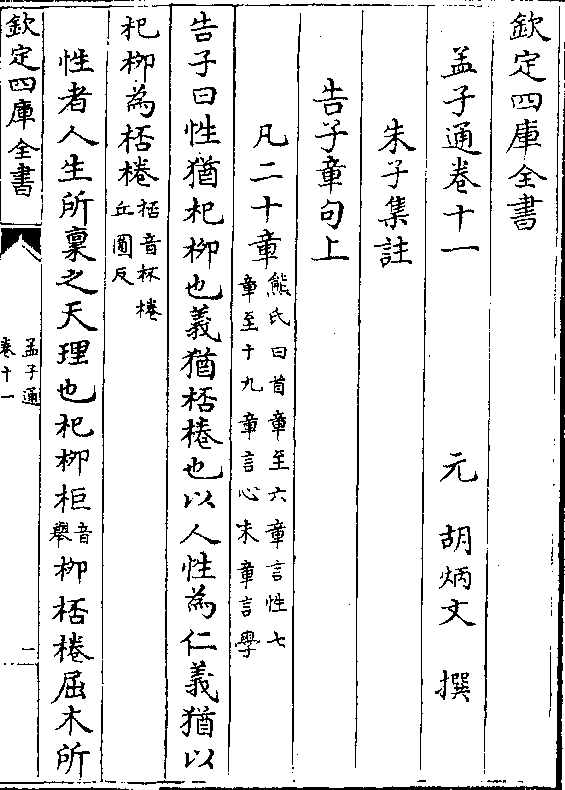 欽定四庫全書
孟子通卷十一
元 胡炳文 撰
朱子集註
告子章句上
凡二十章熊氏曰首章至六章言性七
章至十九章言心末章言學
告子曰性猶杞柳也義猶桮棬也以人性為仁義猶以
杞柳為桮棬桮音杯棬
丘圓反
性者人生所稟之天理也杞柳柜音
舉柳桮棬屈木所
欽定四庫全書
孟子通
卷十一
二